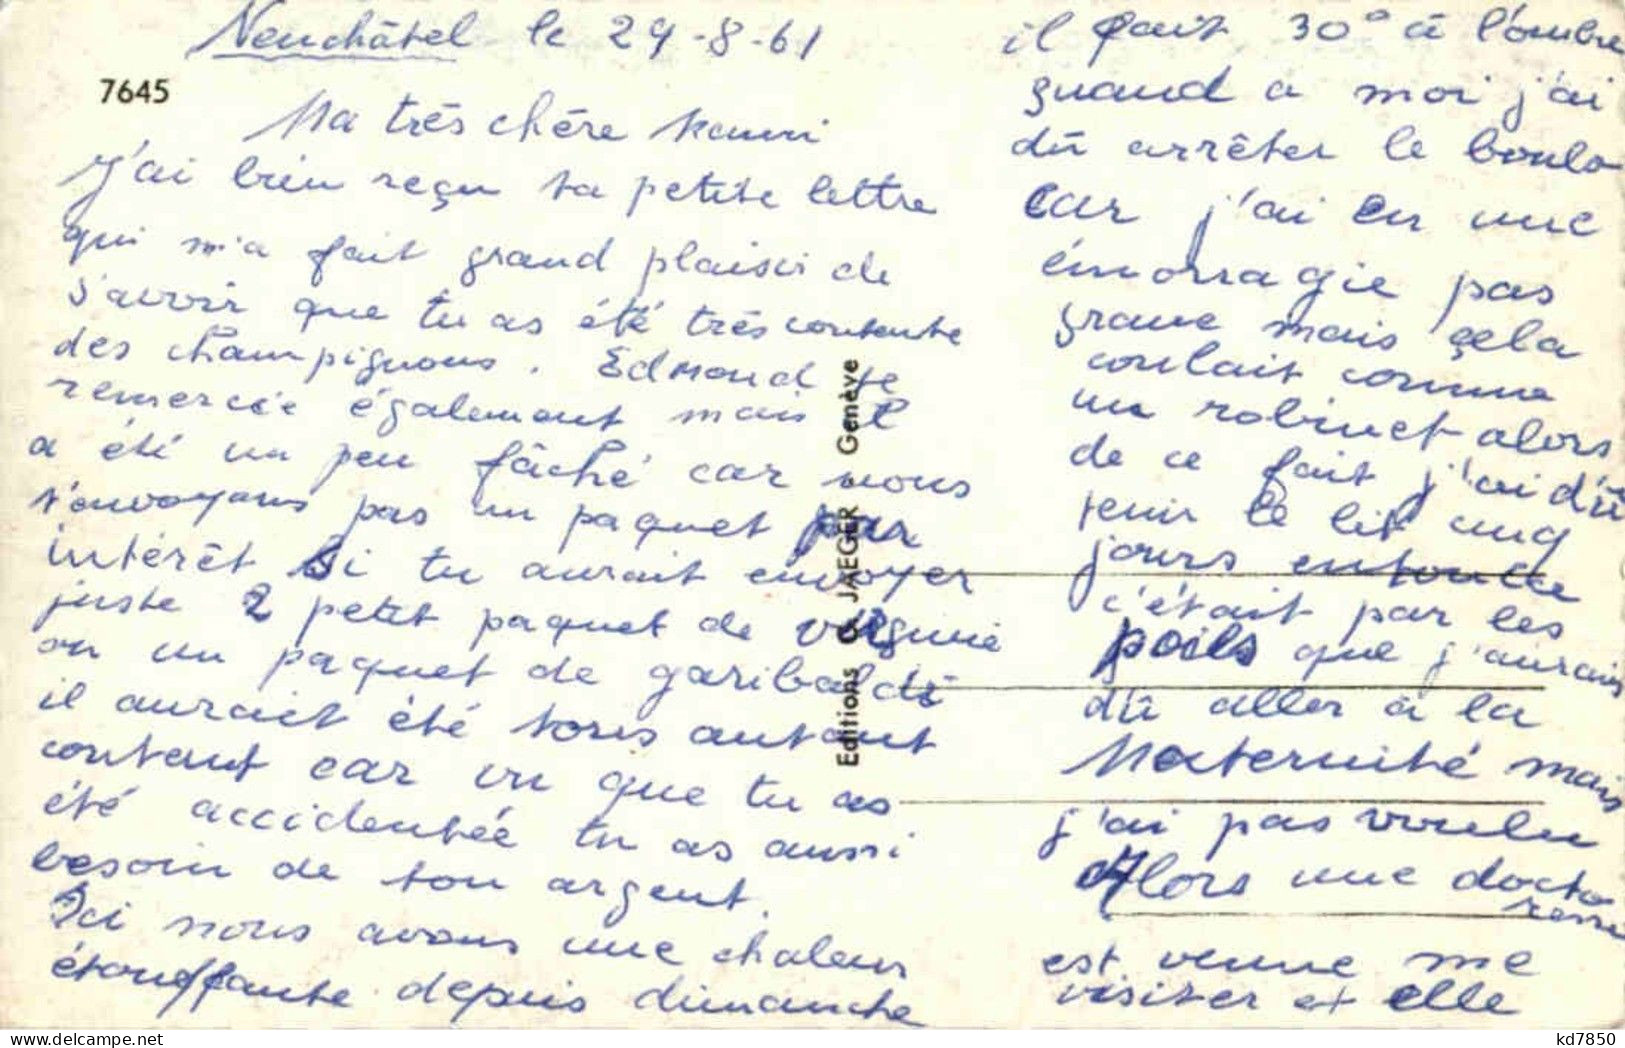 Neuchâtel le 29-8-61
7645
Ma très chère Mami
J'ai bien reçu ta petite lettre
qui m'a fait grand plaisir de
s'avoir que tu as été très contente
des champignons. Edmond te
remercie également mais il
a été un peu fâché car nous
t'envoyons pas un paquet par
intérêt si tu aurait envoyer
juste 2 petit paquet de virginie
ou un paquet de garibaldi
il aurait été tous autant
content car vu que tu as
été accidentée tu as aussi
besoin de ton argent.
Ici nous avons une chaleur
étouffante depuis dimanche
Editions O. JAEGER Genève
il fait 30° à l'ombre
quand a moi j'ai
dû arrêter le boulo
car j'ai eu une
émorragie pas
grave mais çela
coulait comme
un robinet alors
de ce fait j'ai dû
tenir le lit cinq
jours entoutte
c'était par les
poils que j'aurais
dû aller à la
Maternité mais
j'ai pas voulu
Alors une docto
resse
est venue me
visiter et elle
kd7850